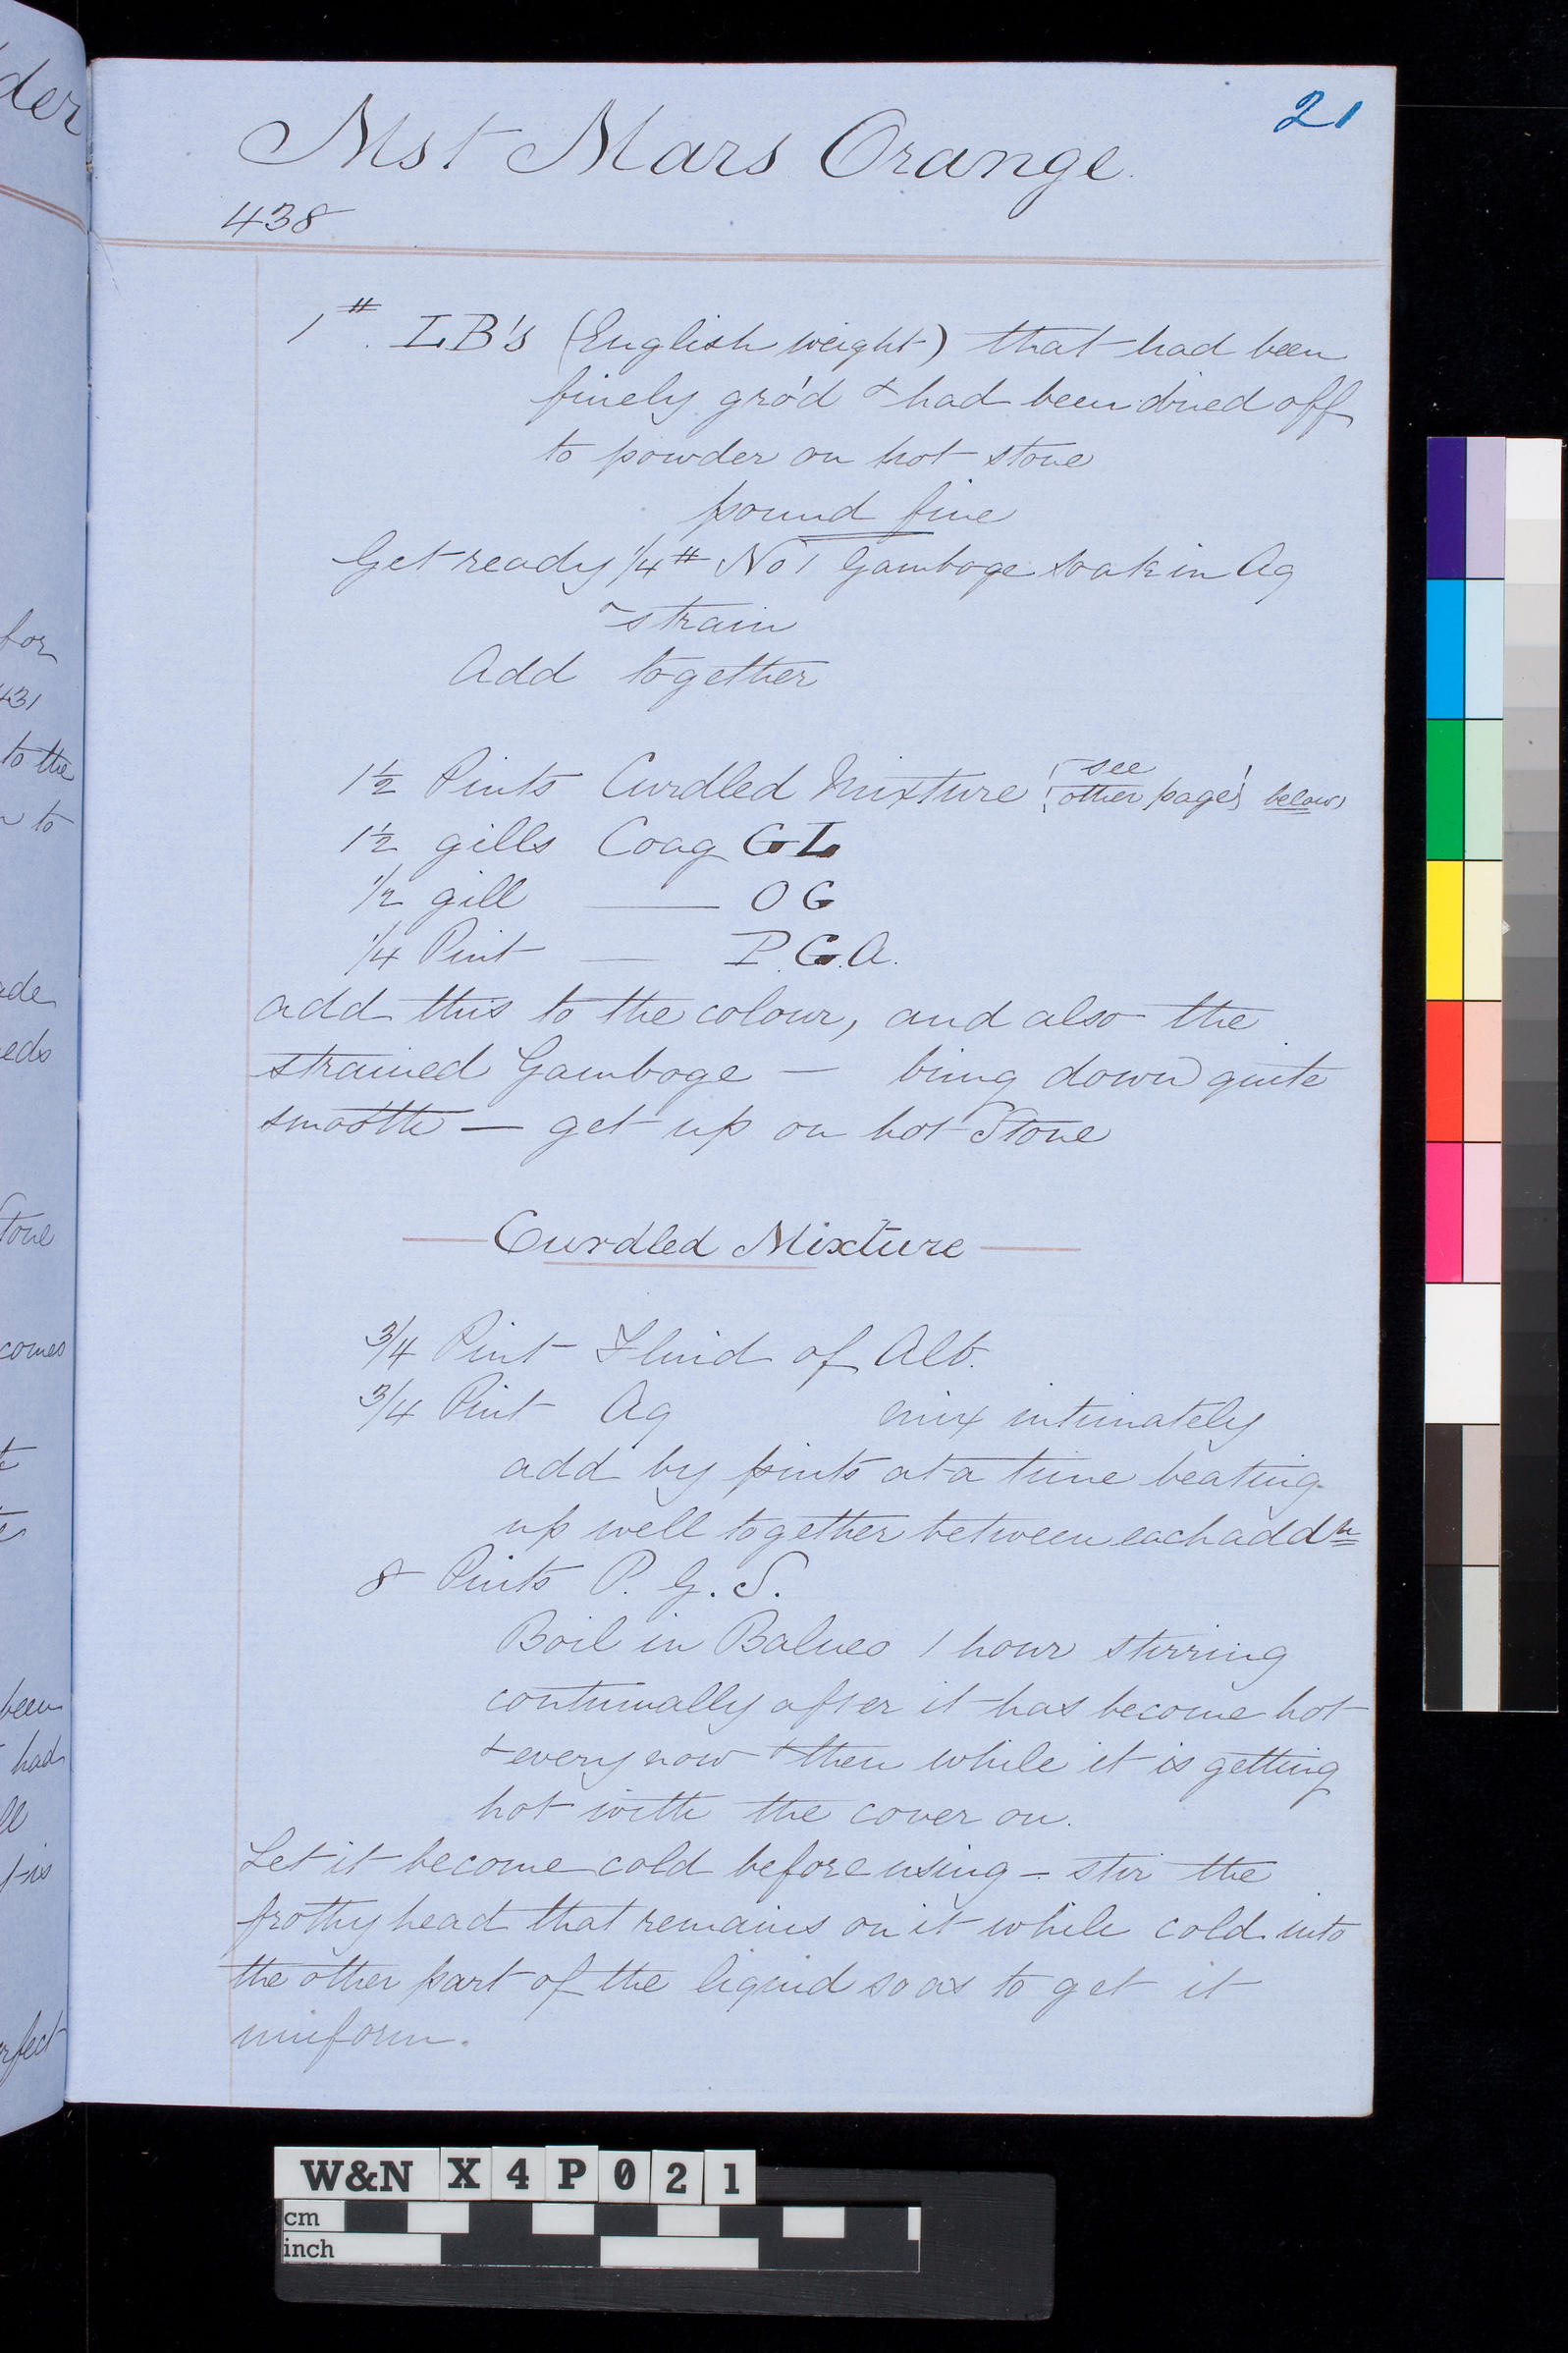 21
Mst Mars Orange.
438
1#. LB's (English weight) that had been
finely gro'd & had been dried off
to powder on hot stone
pound fine
Get ready 1/4# No 1 Gamboge soak in Aq
& strain
Add together
1½ Pints Curdled Mixture (see
other page) below
1½ gills Coag GL
1/2 gill —— OG
1/4 Pint — P.G.A.
add this to the colour, and also the
strained Gamboge — bring down quite
smooth — get up on hot Stone
Curdled Mixture
3/4 Pint Fluid of Alb.
3/4 Pint Aq mix intimately
add by pints at a time beating
up well together between each addn
8 Pints P. G. S.
Boil in Balneo 1 hour stirring
continually after it has become hot
& every now & then while it is getting
hot with the cover on.
Let it become cold before using — stir the
frothy head that remains on it while cold into
the other part of the liquid so as to get it
uniform.
der
for
431
to the
to
eds
Stone
comes
been
had
W&N X 4 P 0 2 1
cm
inch